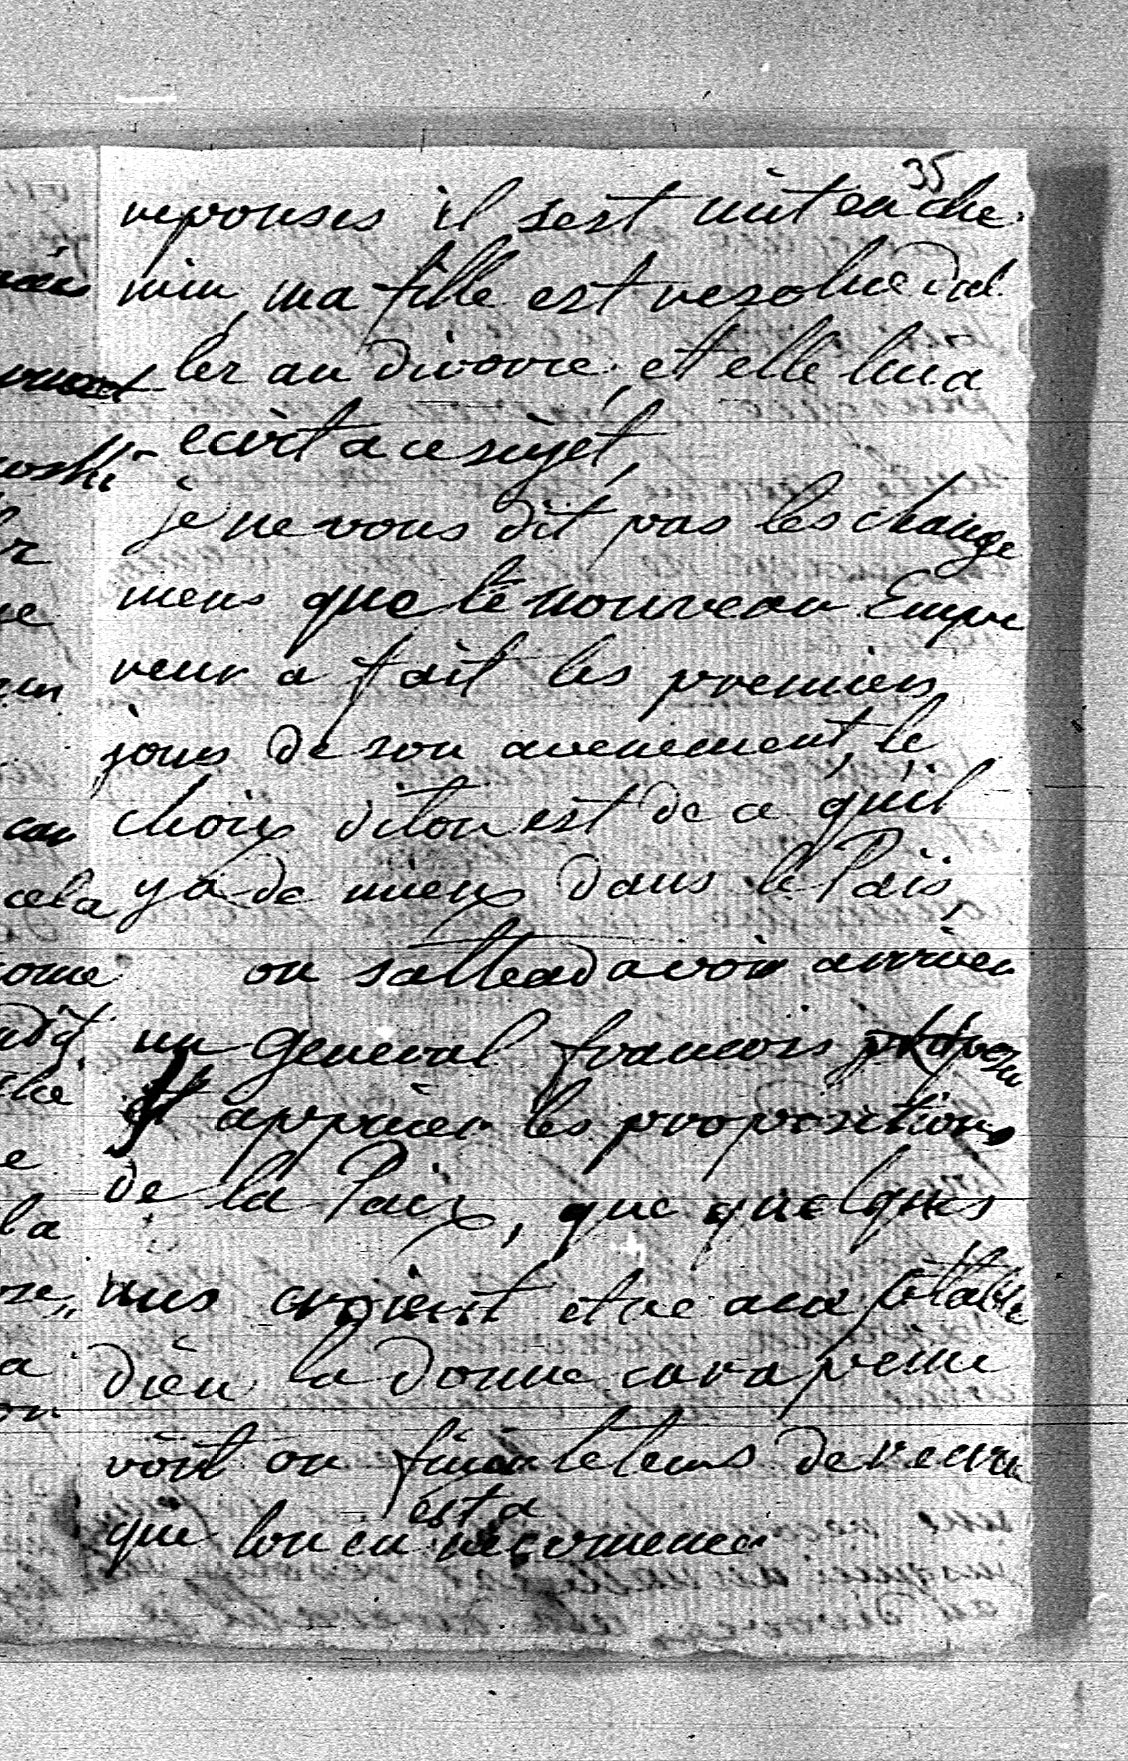 35
reponses il sest mit en che
min, ma fille est resolue dal
ler au divorce, et elle lui a
ecirt a ce sujet,
je ne vous dit pas les change
mens que le nouveau Empe
reur a fait les premiers
jours de son avenement, le
choix diton est de ce qu'il
y a de mieux dans le Païs,
on satteadavoir arriver
un General francois
appuier les propositions
de la Paix, que quelques
uns croient etre
dieu la donne, car a peine
voit on finir le tems de
que lon en est a recomencer